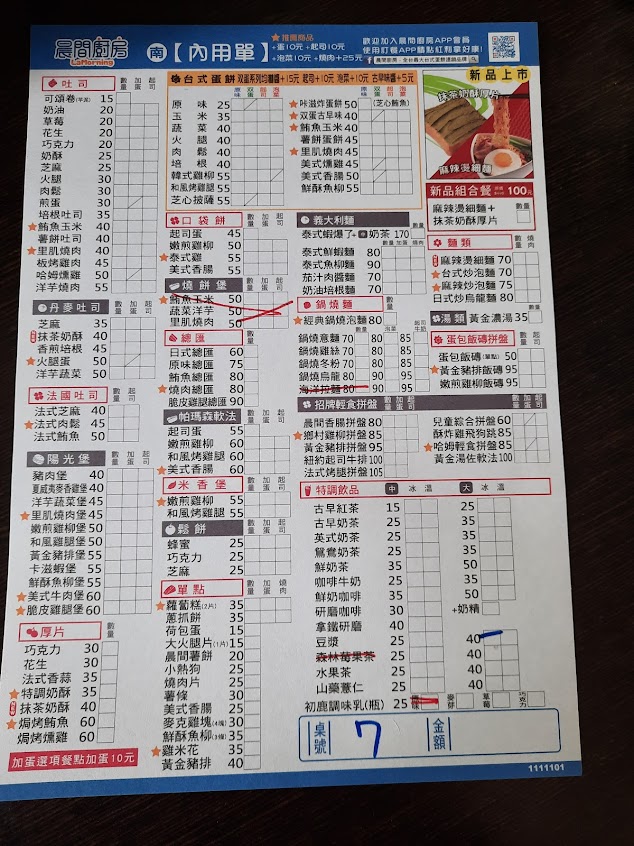 晨間廚房
LaMorning
南【內用單】
★推薦商品
+蛋10元 +起司10元
+泡菜10元 +燒肉+25元
歡迎加入晨間廚房APP會員
使用訂餐APP請點紅利拿好康!
晨間廚房，全台最大台式蛋餅連鎖品牌
吐司 數量 加蛋 起司
可頌卷(平蛋) 15
奶油 20
草莓 20
花生 20
巧克力 20
奶酥 25
芝麻 25
火腿 30
肉鬆 30
煎蛋 30
培根吐司 35
★鮪魚玉米 40
薯餅吐司 40
★里肌燒肉 40
板烤雞肉 45
哈姆燻雞 50
洋芋燒肉 55
丹麥吐司 數量 加蛋 起司
芝麻 35
抹茶奶酥 40
香煎培根 45
★火腿蛋 50
洋芋沙拉 50
法國吐司 數量 加蛋 起司
法式芝麻 40
★法式肉鬆 45
法式鮪魚 50
陽光堡 數量 加蛋 起司
豬肉堡 40
夏威夷麥香雞堡 40
洋芋蔬菜堡 45
★里肌燒肉堡 45
嫩煎雞柳堡 50
和風雞柳堡 50
黃金豬排堡 55
卡滋蝦堡 55
鮮酥魚柳堡 55
★美式牛肉堡 60
★脆皮雞腿堡 60
厚片 數量
巧克力 30
花生 30
法式香蒜 35
★特調奶酥 35
抹茶奶酥 40
★焗烤鮪魚 60
焗烤燻雞 60
加蛋選項餐點加蛋10元
台式蛋餅 双蛋系列均附醬+15元 起司+10元 泡菜+10元 古早味醬+5元
原味 双蛋 起司 泡菜
原味 25
玉米 35
蔬菜 40
火腿 40
肉鬆 40
培根 40
韓式雞柳 55
和風雞柳 55
芝心披薩 55
★卡滋炸蛋餅 50 (芝心鮪魚)
★双蛋古早味 40
★鮪魚玉米 40
薯餅蛋餅 45
★里肌燒肉 45
美式燻雞 50
美式香腸 50
鮮酥魚柳 55
口袋餅 數量 加蛋 起司
起司蛋 45
嫩煎雞柳 50
★泰式雞 55
美式香腸 55
燒餅堡 數量 加蛋 起司
★鮪魚玉米 50
蔬菜洋芋 50
里肌燒肉 50
總匯 數量 加蛋 起司
日式總匯 60
原味總匯 75
鮪魚總匯 80
★燒肉總匯 80
脆皮雞總匯 90
帕瑪森軟法 數量 加蛋 起司
起司蛋 55
嫩煎雞柳 60
和風雞腿 60
★美式香腸 60
米香堡 數量 加蛋 起司
★嫩煎雞柳 55
和風烤雞 55
鬆餅 數量 加蛋 起司
蜂蜜 25
巧克力 25
芝麻 25
單點 數量 加蛋 燒肉
★蘿蔔糕(2片) 35
蔥抓餅 30
荷包蛋 15
大火腿片(1片) 15
晨間薯餅 20
小熱狗 25
燒肉片 25
薯條 30
美式香腸 25
麥克雞塊(4塊) 30
鮮酥魚柳(3條) 35
★雞米花 35
黃金豬排 40
義大利麵
泰式蝦爆了+奶茶 170
數量 加蛋 燒肉
泰式鮮蝦麵 80
泰式魚柳麵 90
茄汁肉醬麵 70
奶油培根麵 70
鍋燒麵 數量 加蛋 起司
★經典鍋燒泡麵 80
原味 數量 泡菜 起司牛奶
鍋燒意麵 70 80 85
鍋燒雞絲 70 80 85
鍋燒冬粉 70 80 85
鍋燒烏龍 80 90 95
海洋拉麵 80 90 95
招牌輕食拼盤 數量 加蛋 起司
晨間香腸拼盤 80
★鄉村雞柳拼盤 85
黃金豬排拼盤 95
紐約起司牛排 105
法式烤腿拼盤 105
兒童綜合拼盤 60
酥炸雞飛狗跳 85
★哈姆輕食拼盤 85
黃金湯佐軟法 100
特調飲品 中 冰 溫 大 冰 溫
古早紅茶 15 25
古早奶茶 25 35
英式奶茶 25 35
鴛鴦奶茶 25 35
鮮奶茶 25 35
咖啡牛奶 25 35
鮮奶咖啡 25 35
研磨咖啡 30 +奶精
拿鐵研磨 40
豆漿 25 40
森林莓果茶 25 40
水果茶 25 40
山藥薏仁 25 40
初鹿調味乳(瓶) 25 原味 麥芽 草莓 巧克力
新品上市
抹茶奶酥厚片
麻辣燙細麵
新品組合餐 100元
麻辣燙細麵+
抹茶奶酥厚片 數量
麵類 數量 燒肉
麻辣燙細麵 70
★台式炒泡麵 70
★燒肉炒泡麵 75
日式炒烏龍 80
湯類 黃金濃湯 35 數量
蛋包飯磚拼盤
蛋包飯磚(單點) 50
★黃金豬排飯磚 95
嫩煎雞柳飯磚 95
桌號 7 金額
1111101